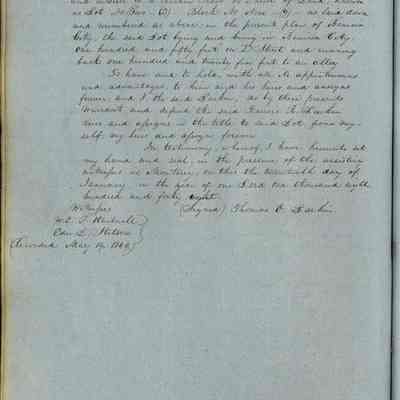 and numbered as above in the present plan of Benicia
City, the said Lot lying and being in Benicia City
one hundred and fifty feet on D Street and running
back one hundred and twenty five feet to an alley
To have and to hold, with all its appurtenances
and advantages, to him and his heirs and assigns
forever, and I the said Larkin, as by these presents
warrant and defend the said
heirs and assigns in the title to said Lot from my-
self, my heirs and assigns forever
In testimony, whereof, I have hereunto set
my hand and seal, in the presence of the
witnesses at Monterey, on this the twentieth day of
January in the year of our Lord one thousand eight
hundred and forty eight
Witnesses (Signed) Thomas O. Larkin
Recorded May 19